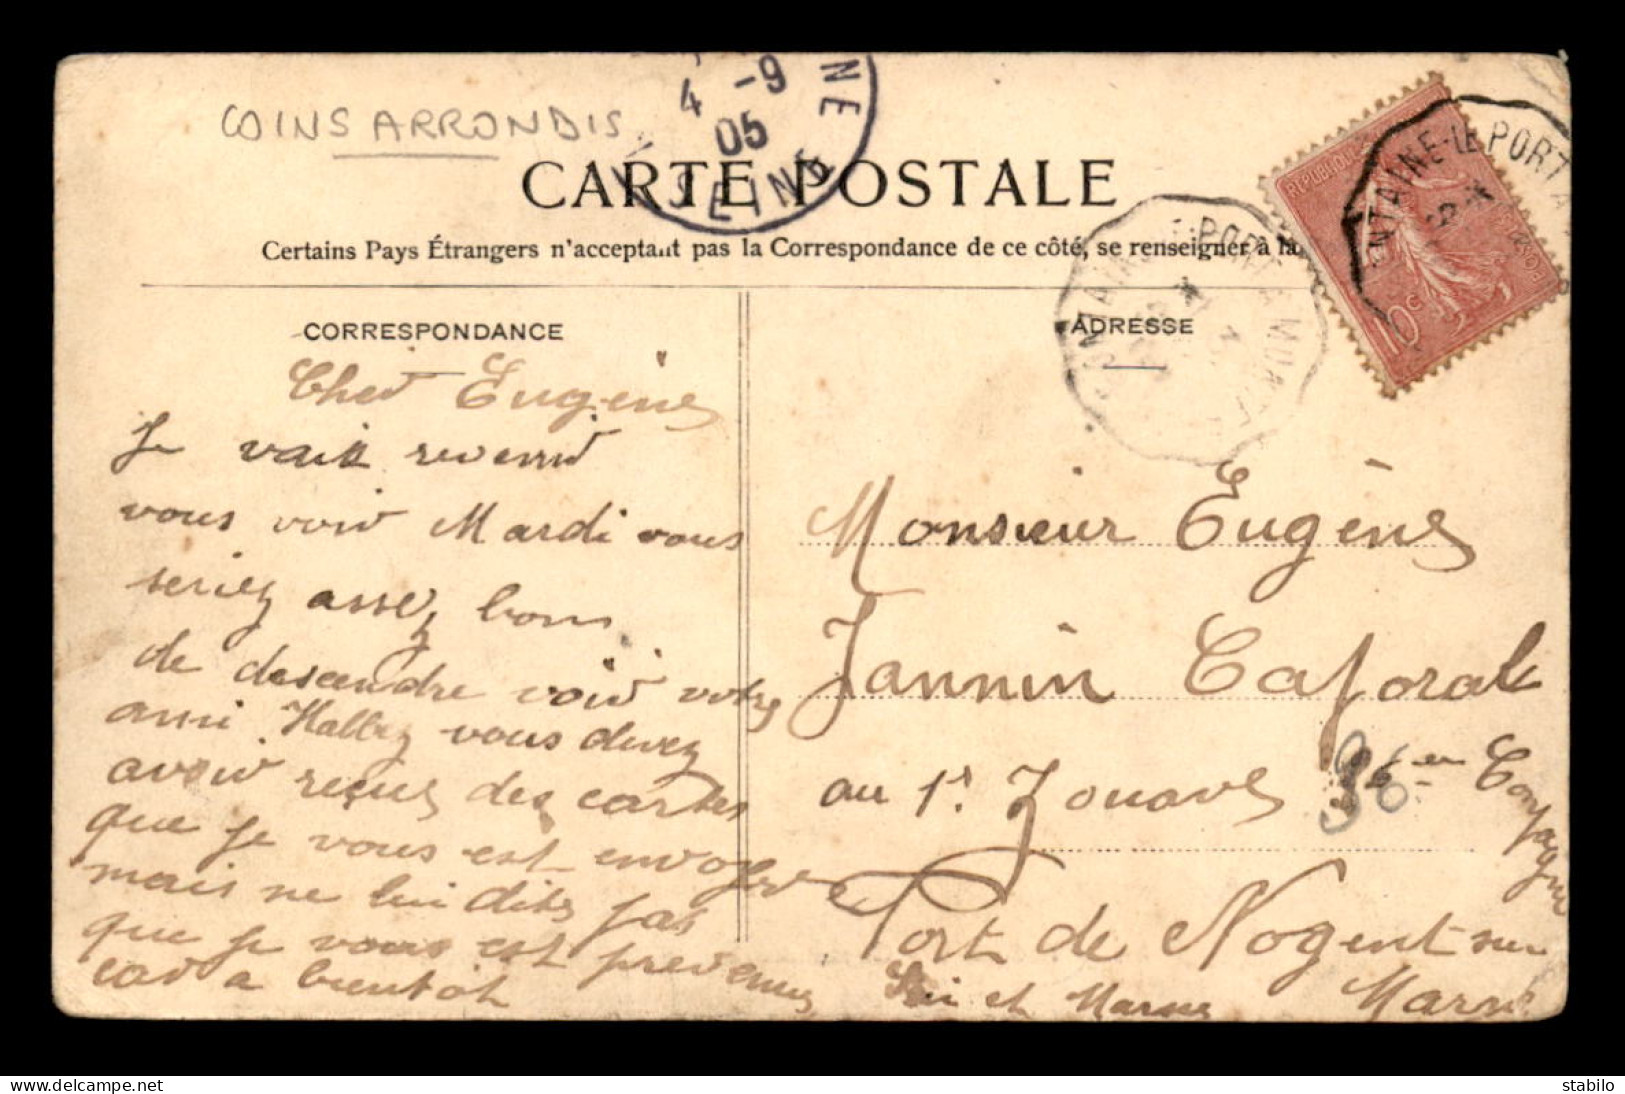 COINS ARRONDIS
4 -9
05
NE
SEINE
CARTE POSTALE
Certains Pays Étrangers n'acceptant pas la Correspondance de ce côté, se renseigner à la
CORRESPONDANCE
Cher Eugène
Je vait revenir
vous voir Mardi vous
seriez assez bons
de descendre voir votre
ami vous devez
avoir reçue des cartes
que je vous est envoyer
mais ne lui dites pas
que je vous est prevenus
car a bientôt
ADRESSE
NTAINE-LE PORT A
RÉPUBLIQUE
10c
PORT A
Monsieur Eugène
Jannin Caporale
au 1r. Zouaves 36em Compagnie
Port de Nogent sur
Marne
et Marne
delcampe.net
stabilo